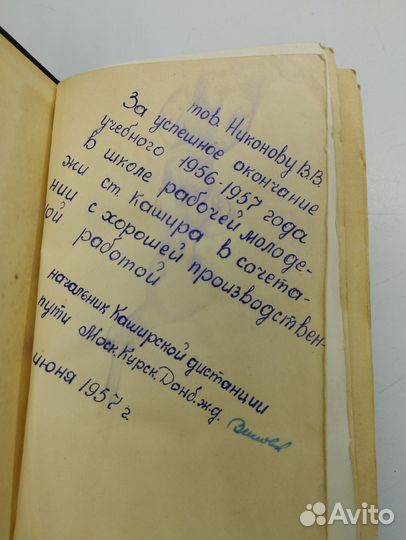 тов. Никонову В.В.
За успешное окончание
учебного 1956-1957 года
в школе рабочей молоде-
жи ст. Кашира в сочета-
нии с хорошей производствен-
ной работой
начальник Каширской дистанции
пути Моск.Курск.Донб.ж.д.
июня 1957 г.
Avito